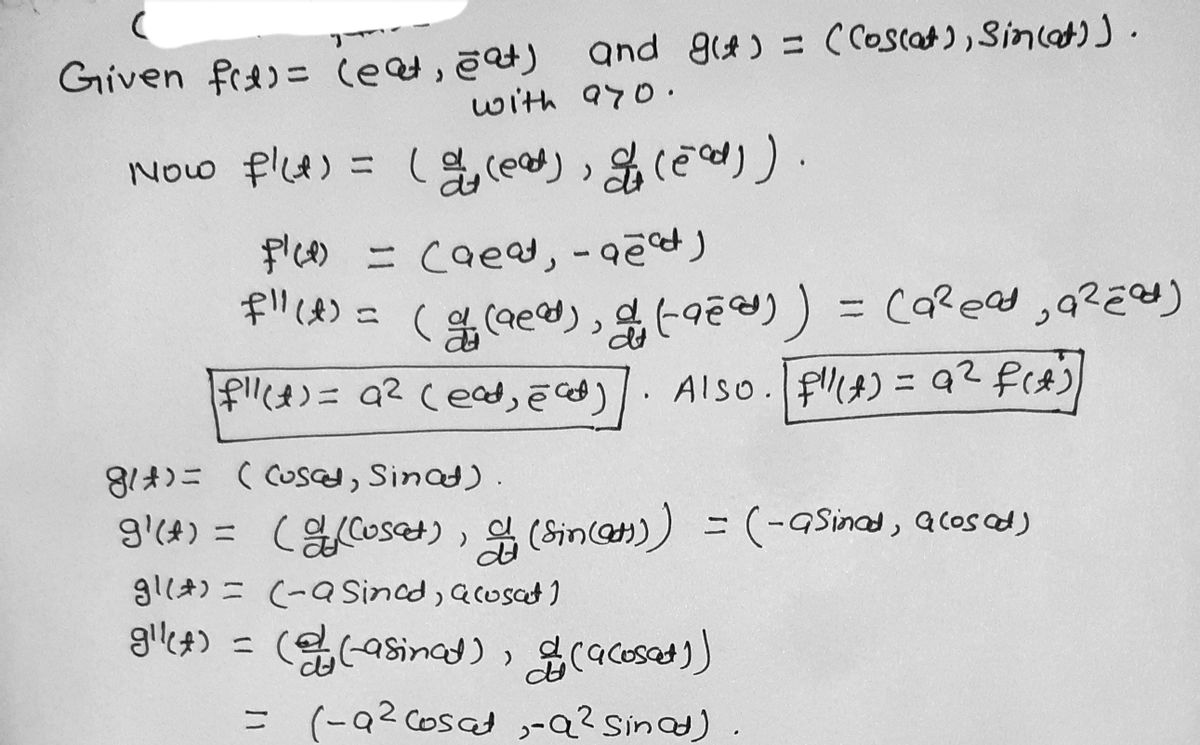 Given f(t) = (e^at, e^-at) and g(t) = (Cos(at), Sin(at)).
with a>0.
Now f'(t) = (d/dt(e^at), d/dt(e^-at)).
f'(t) = (ae^at, -ae^-at)
f''(t) = (d/dt(ae^at), d/dt(-ae^-at)) = (a²e^at, a²e^-at)
f''(t) = a²(e^at, e^-at). Also. f''(t) = a² f(t)
g(t) = (Cosat, Sinat).
g'(t) = (d/dt(Cosat), d/dt(Sin(at))) = (-aSinat, aCosat)
g'(t) = (-aSinat, aCosat)
g''(t) = (d/dt(-asinat), d/dt(aCosat))
= (-a²Cosat, -a²Sinat).